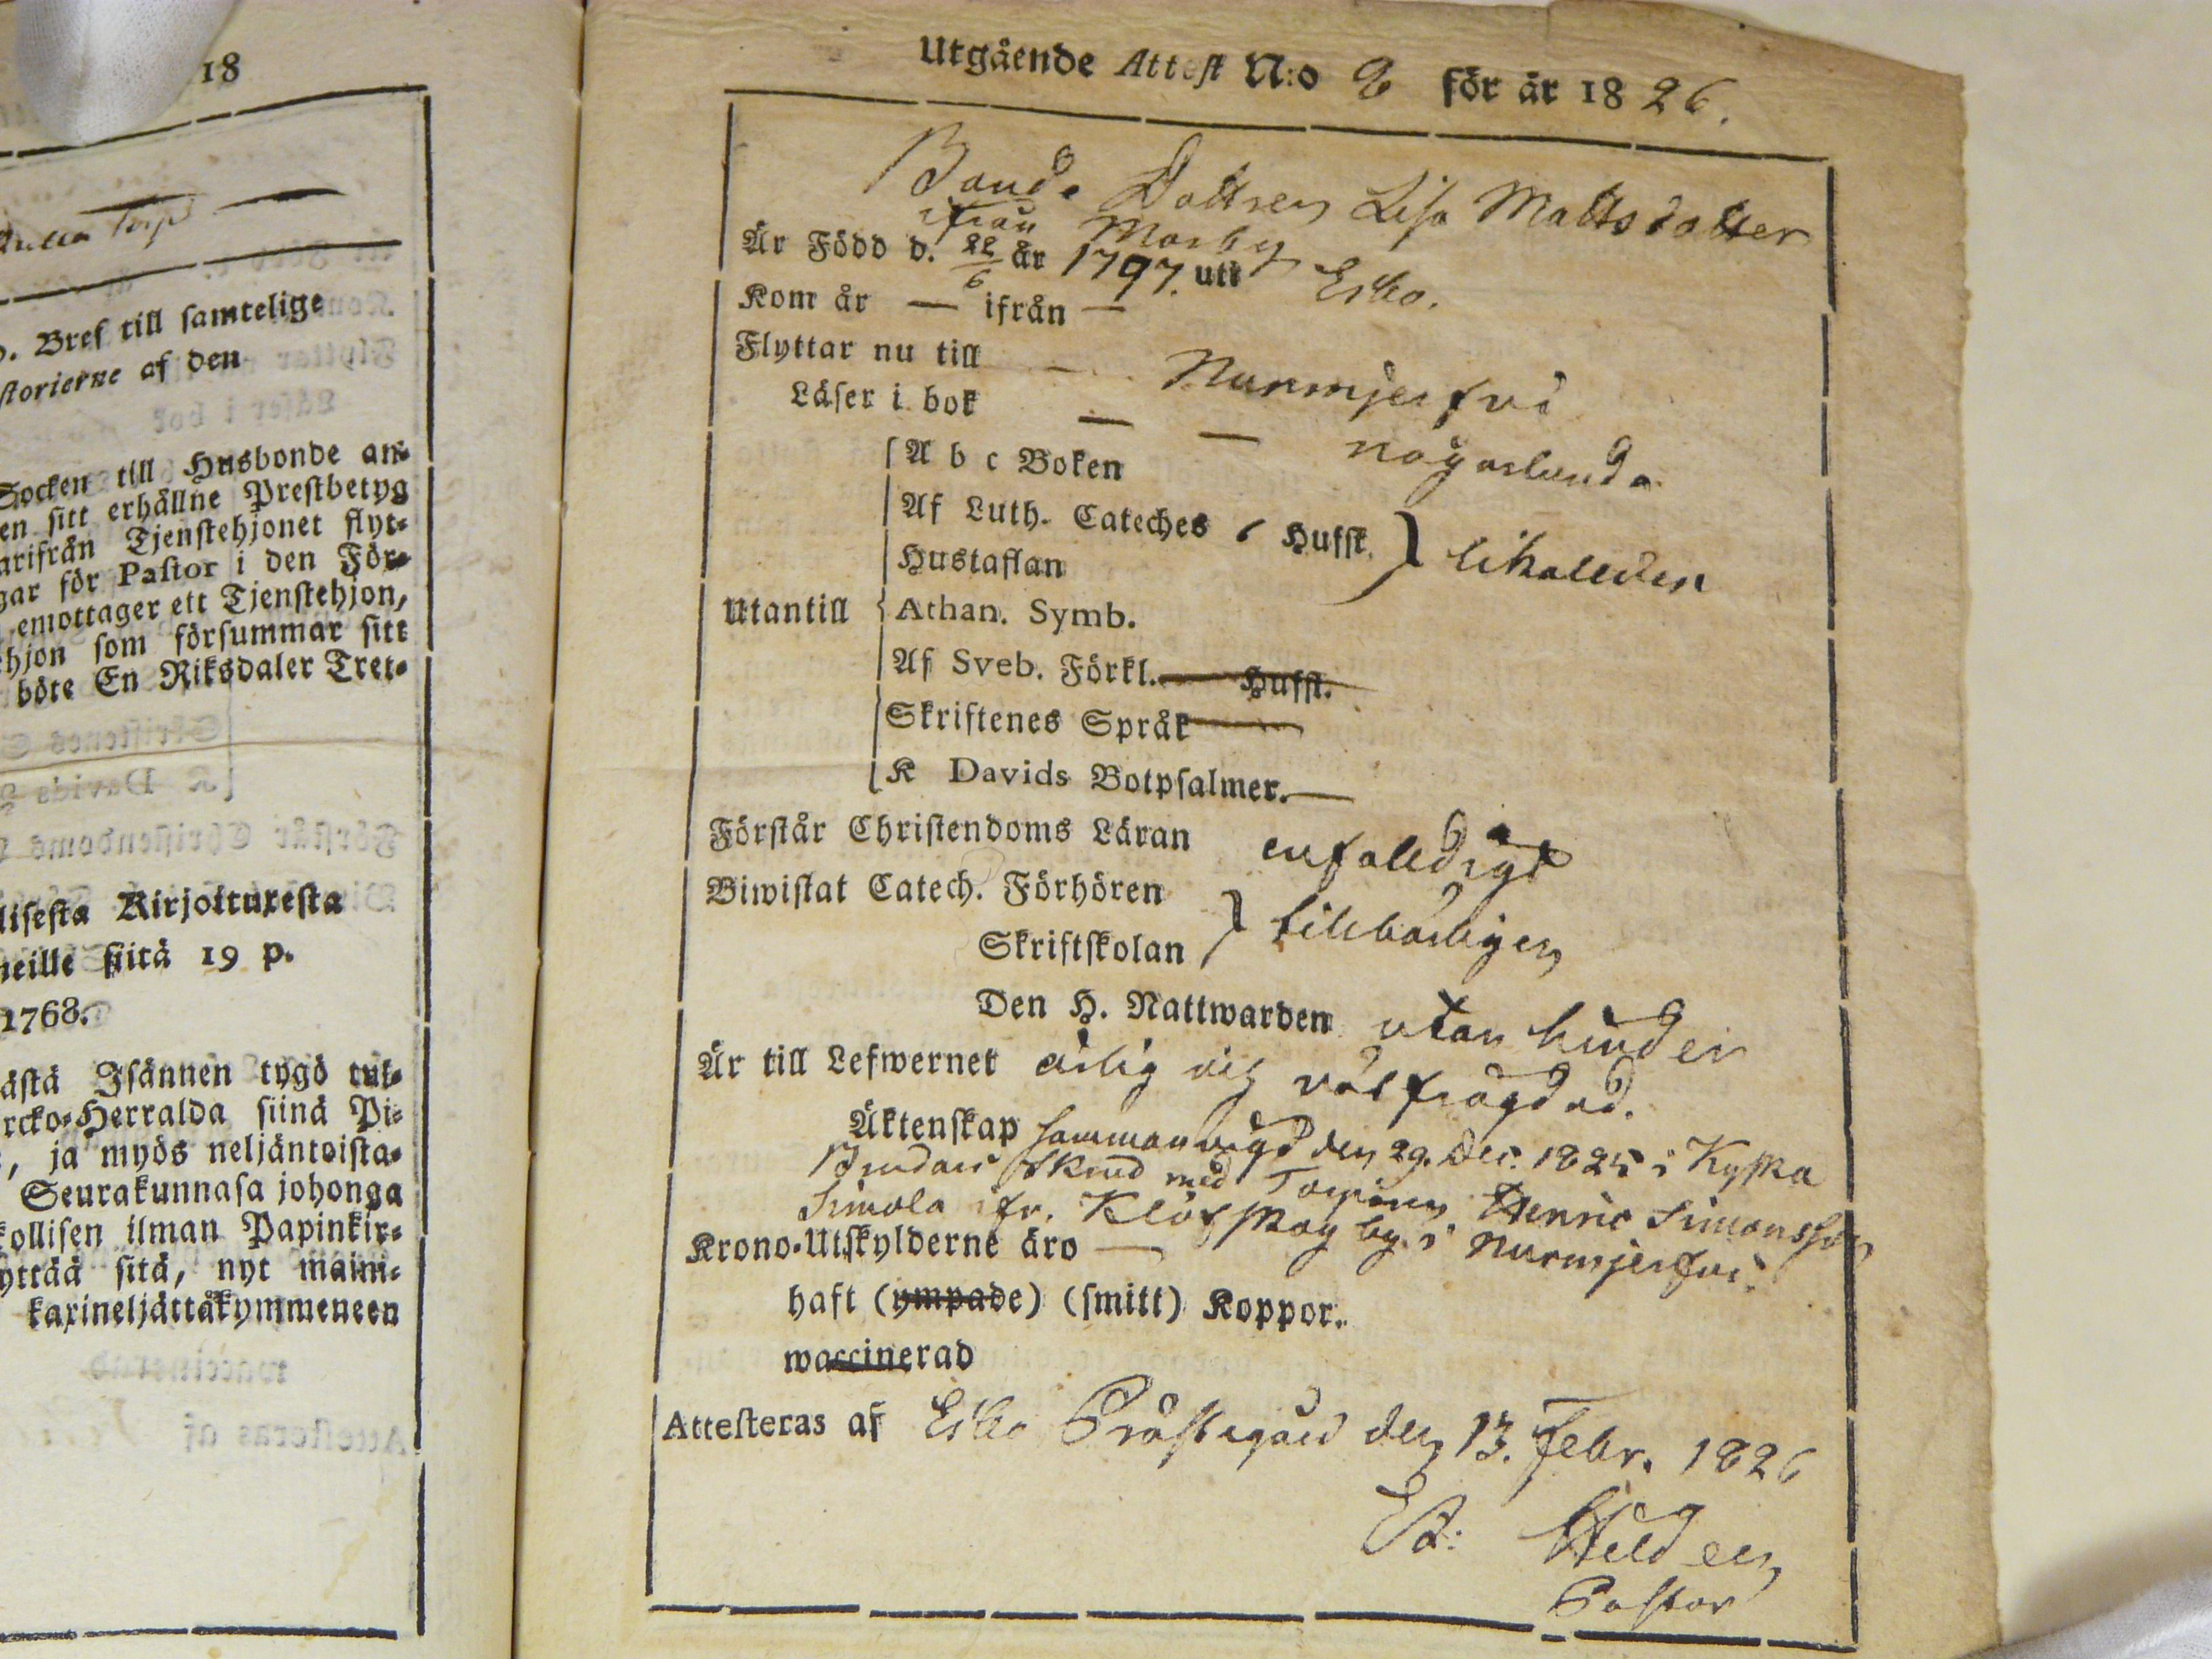 18
o. Bref till samtelige
storierne af den
Socken till Husbonde an-
en sitt erhållne Prestbetyg
arifrån Tjenstehjonet flyt-
gar för Pastor i den För-
emottager ett Tjenstehjon,
hjon som försummar sitt
böte En Riksdaler Tret-
lisesta Kirjoituxesta
neille siitä 19 p.
1768.
ästä Isännen tygö tul-
rcko-Herralda siinä Pi-
, ja myös neljäntoista-
Seurakunnasa johonga
kollisen ilman Papinkir-
yttää sitä, nyt maini-
kaxineljättäkymmeneen
Utgående Attest N:o 8 för år 1826.
Bonde Dottren Lisa Mattsdotter
ifrån Morby
Är Född d. 22/6 år 1797. uti Esbo.
Kom år — ifrån —
Flyttar nu till — Nurmjerfvi
Läser i bok — — någorlunda
A b c Boken
Af Luth. Cateches 6 Hufst.
Hustaflan } likaledes
Utantill { Athan. Symb.
Af Sveb. Förkl. Hufst.
Skriftenes Språk
K Davids Botpsalmer.—
Förstår Christendoms Läran enfaldigt
Biwistat Catech. Förhören
Skriftskolan } tillbörligen
Den H. Nattwarden utan hinder
Är till Lefwernet ärlig och välfrägdad.
Äktenskap sammanvigd den 29. Dec. 1825 i Kyrka
Brudar skrud med Torparen Henric Simonsson
Simola ifr. Klöfskog by i Nurmjerfvi.
Krono-Utskylderne äro —
haft (ympade) (smitt) Koppor.
waccinerad
Attesteras af Esbo Prästegård den 13. Febr. 1826
Pastor